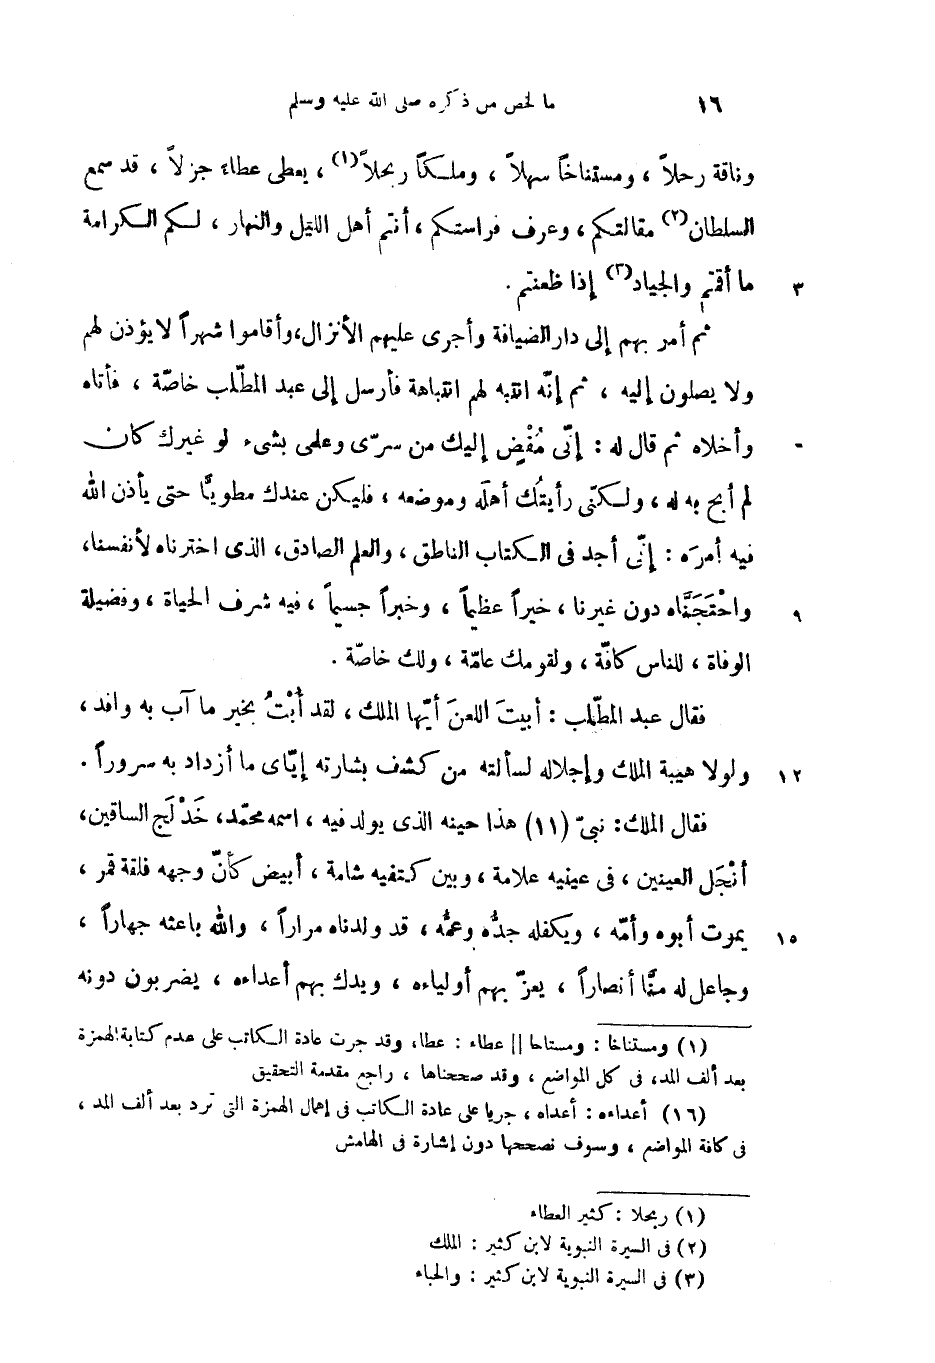 ١٦ ما لخص من ذكره صلى الله عليه وسلم
وناقة رحلاً ، ومستناخاً سهلاً ، وملكاً ربحلاً(١) ، يعطى عطاءً جزلاً ، قد سمع
السلطان(٢) مقالتكم ، وعرف فراستكم ، أنتم أهل الليل والنهار ، لكم الكرامة
٣ ما أقمتم والجياد(٣) إذا ظعنتم .
ثم أمر بهم إلى دار الضيافة وأجرى عليهم الأنزال، وأقاموا شهراً لا يؤذن لهم
ولا يصلون إليه ، ثم إنّه انتبه لهم انتباهة فأرسل إلى عبد المطّلب خاصّة ، فأتاه
وأخلاه ثم قال له : إنّى مُفْضٍ إليك من سرّى وعلمى بشىء لو غيرك كان
لم أبح به له ، ولكنّى رأيتُك أهلَه وموضعه ، فليكن عندك مطويًّا حتى يأذن الله
فيه أمرَه : إنّى أجد فى الكتاب الناطق ، والعلم الصادق، الذى اخترناه لأنفسنا،
٩ واحْتَجَنَّاه دون غيرنا ، خيراً عظيماً ، وخبراً جسيماً ، فيه شرف الحياة ، وفضيلة
الوفاة ، للناس كافّة ، ولقومك عامّة ، ولك خاصّة .
فقال عبد المطّلب : أبيتَ اللعنَ أيّها الملك ، لقد أُبْتُ بخير ما آب به وافد ،
١٢ ولولا هيبة الملك وإجلاله لسألته من كشف بشارته إيّاى ما أزداد به سروراً .
فقال الملك: نبىّ (١١) هذا حينه الذى يولد فيه ، اسمه محمّد، خَدْلَج الساقين،
أنْجَل العينين ، فى عينيه علامة ، وبين كتفيه شامة ، أبيض كأنّ وجهه فلقة قمر ،
١٥ يموت أبوه وأمّه ، ويكفله جدُّه وعمُّه ، قد ولدناه مراراً ، والله باعثه جهاراً ،
وجاعل له منَّا أنصاراً ، يعزّ بهم أولياءه ، ويدك بهم أعداءه ، يضربون دونه
(١) ومستناخا : ومستاحا || عطاء : عطا، وقد جرت عادة الكاتب على عدم كتابة الهمزة
بعد ألف المد، فى كل المواضع ، وقد صححناها ، راجع مقدمة التحقيق
(١٦) أعداءه : أعداه ، جريا على عادة الكاتب فى إهمال الهمزة التى ترد بعد ألف المد ،
فى كافة المواضع ، وسوف نصححها دون إشارة فى الهامش
(١) ربحلا : كثير العطاء
(٢) فى السيرة النبوية لابن كثير : الملك
(٣) فى السيرة النبوية لابن كثير : والحباء